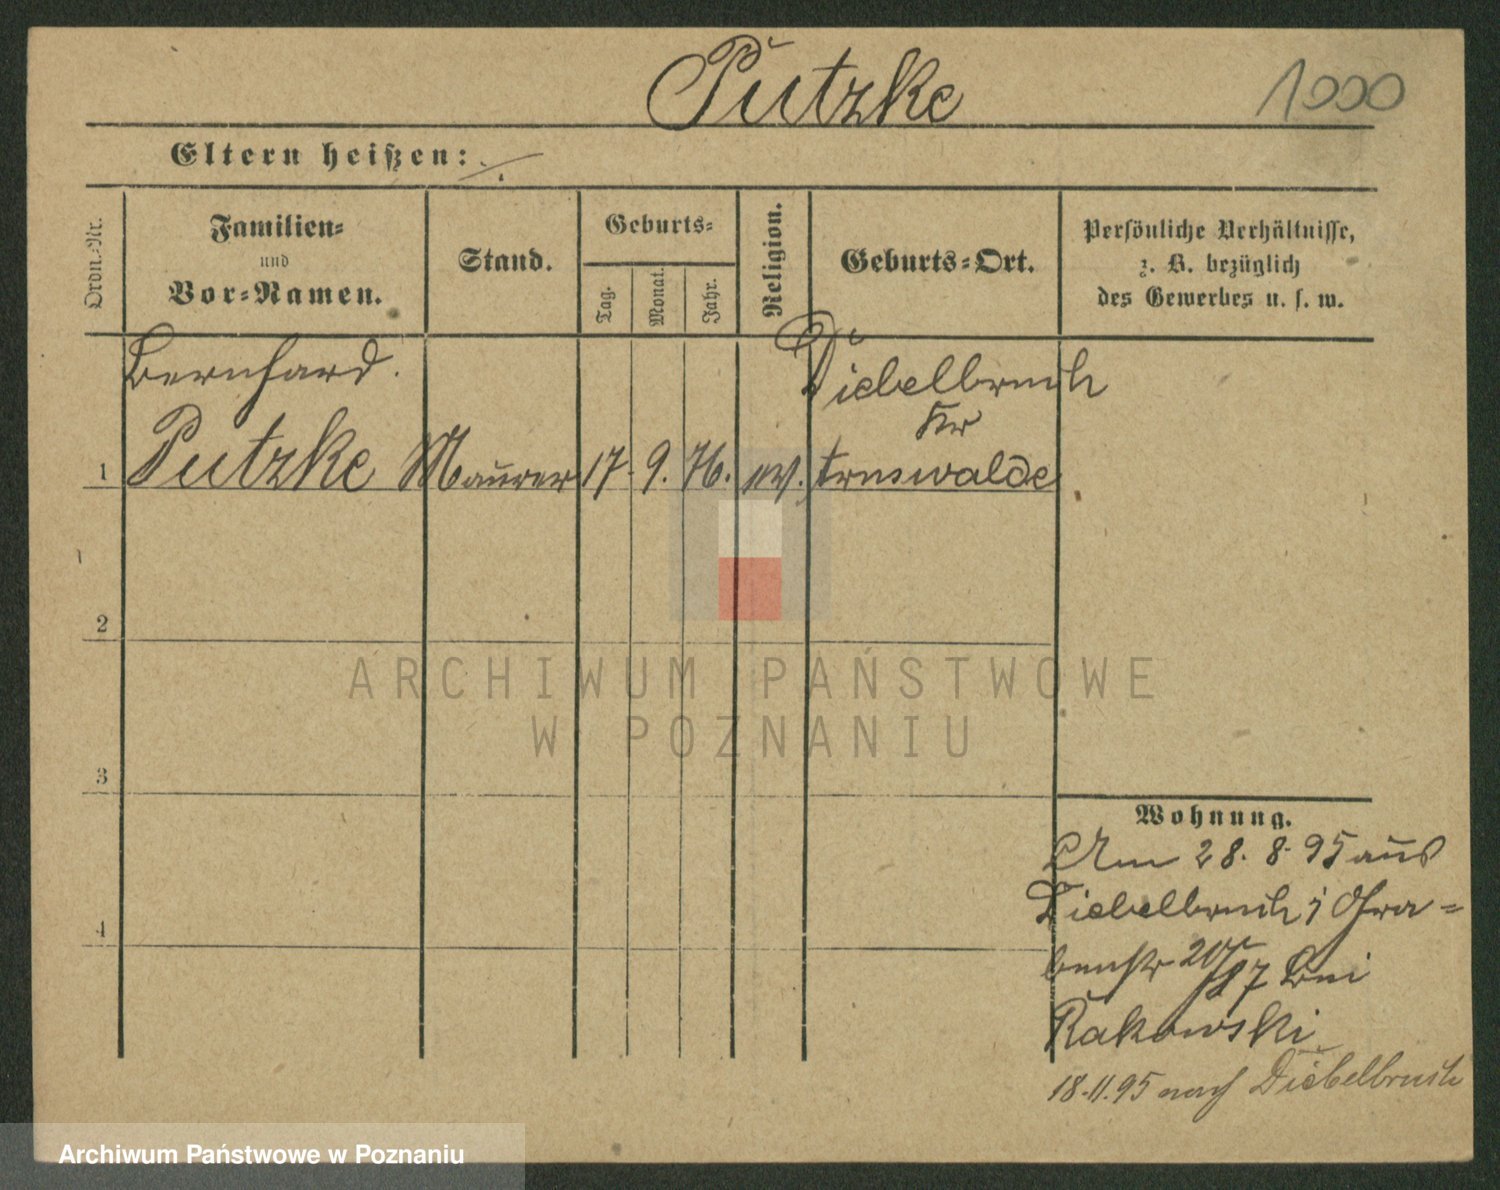 Putzke
1000
Eltern heißen: ./.
Ordn.-Nr.
Familien-
und
Vor-Namen.
Stand.
Geburts-
Tag.
Monat.
Jahr.
Religion.
Geburts-Ort.
Persönliche Verhältnisse,
z. B. bezüglich
des Gewerbes u. s. w.
Bernhard.
1 Putzke Maurer 17. 9. 76. ev.
Diebelbruch
Kr
Arnswalde
2
3
4
Wohnung.
Am 28. 8. 95 aus
Diebelbruch; Gra-
benstr 20 bei
Rakowski
18.11.95 nach Diebelbruch
ARCHIWUM PAŃSTWOWE
W POZNANIU
Archiwum Państwowe w Poznaniu